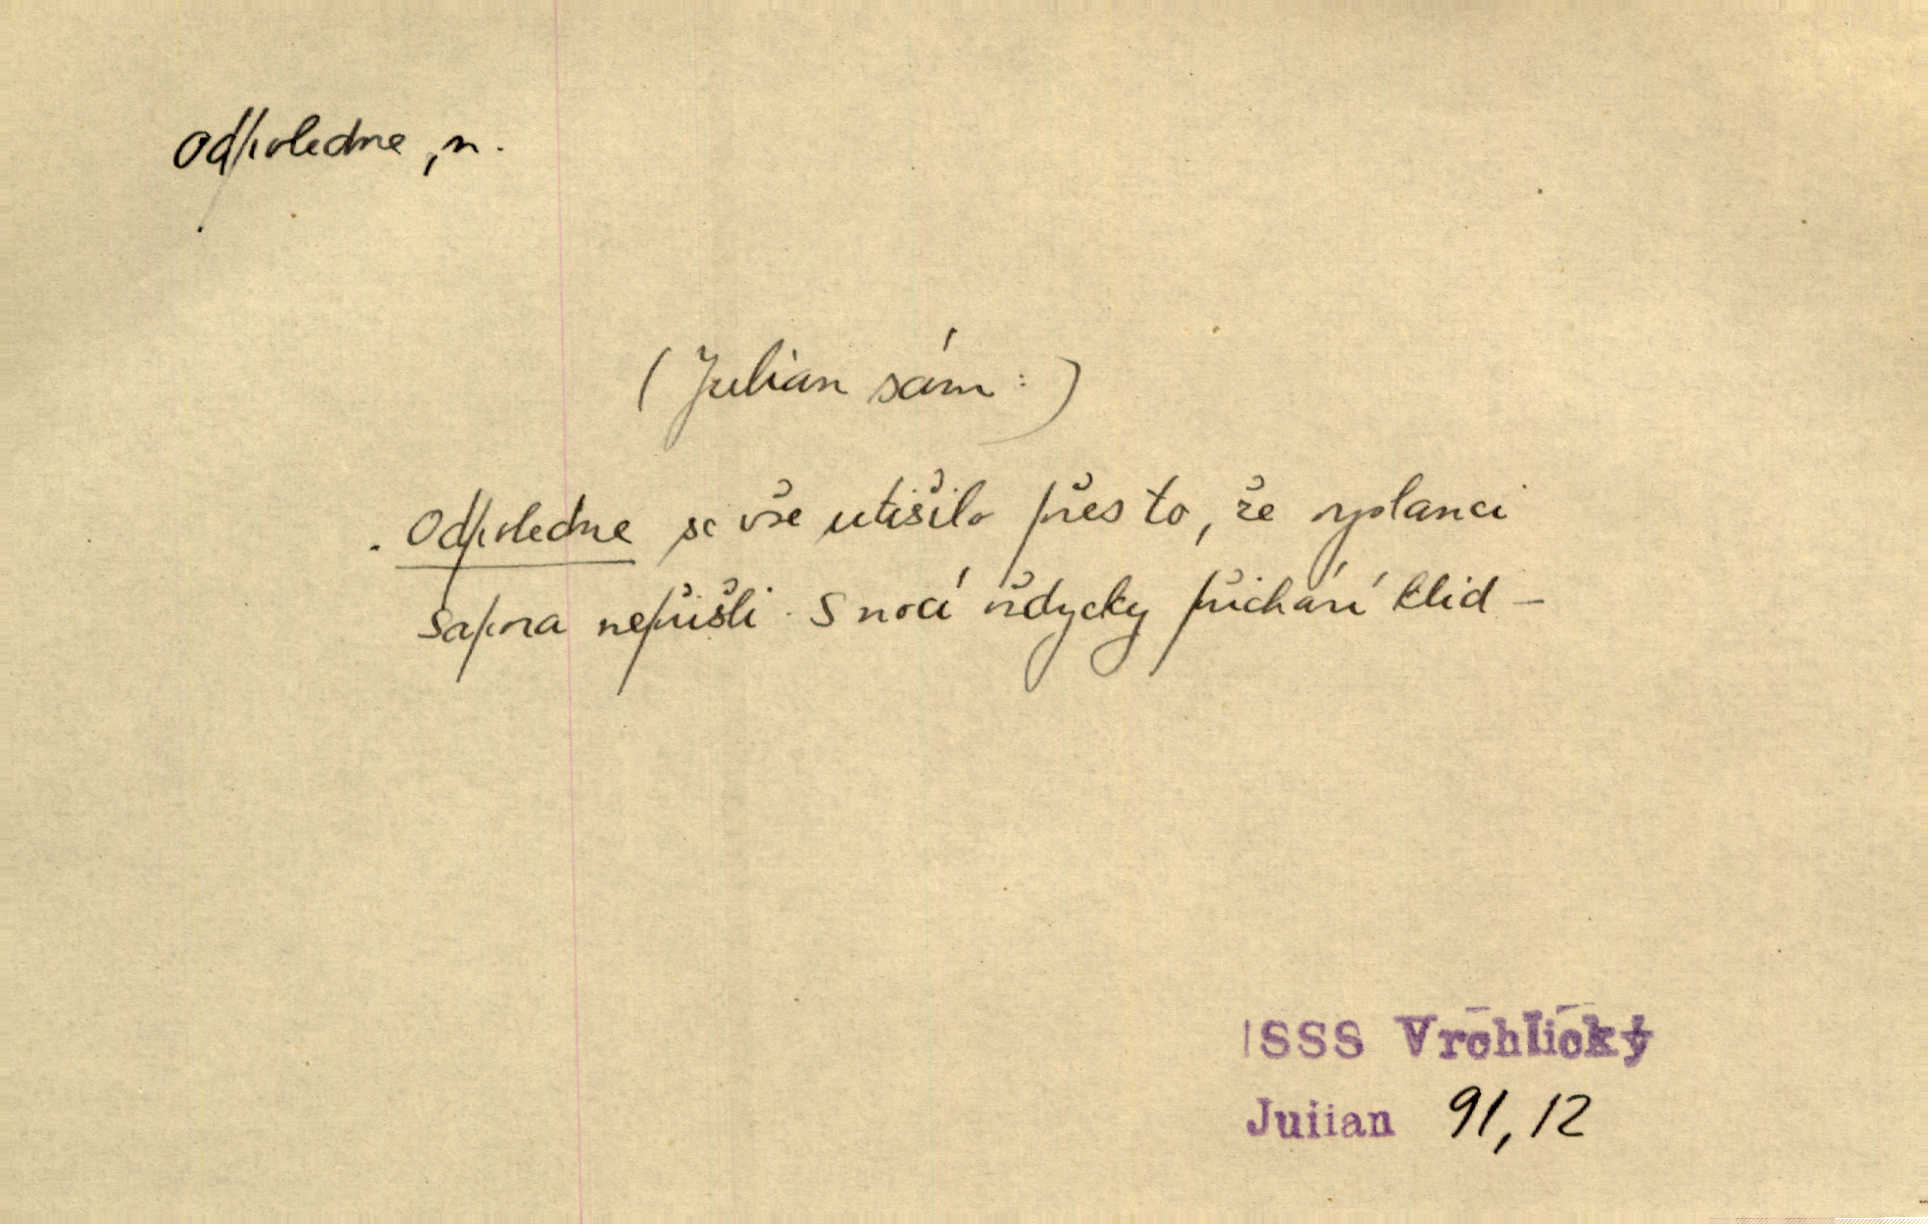 Odpoledne, n.
(Julian sám:)
Odpoledne se vše utišilo přes to, že vyslanci
Sapora nepřišli. S nocí vždycky přichází klid –
SSS Vrchlický
Julian 91, 12